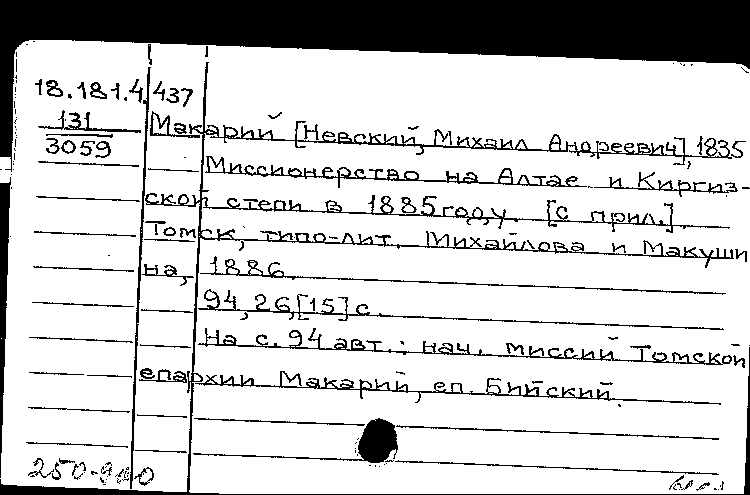 18.181.4.437
131
3059
Макарий [Невский, Михаил Андреевич], 1835
Миссионерство на Алтае и Киргиз-
ской степи в 1885 году. [с прил.].
Томск, типо-лит. Михайлова и Макуши
на, 1886.
94, 26, [15] с.
На с. 94 авт.: нач. миссий Томской
епархии Макарий, еп. Бийский.
250-900